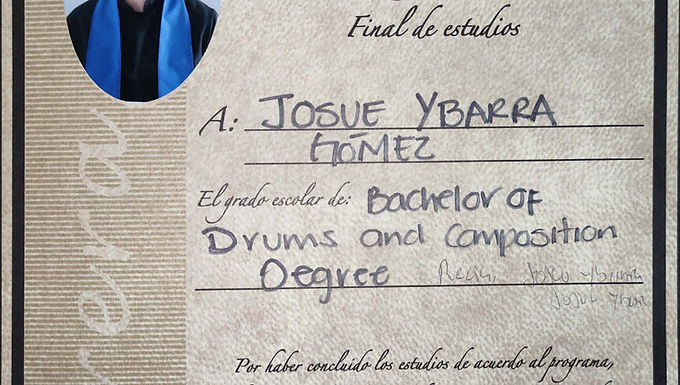 Final de estudios
A: JOSUE YBARRA
GÓMEZ
El grado escolar de: Bachelor of
Drums and Composition
Degree
Josue Ybarra
Por haber concluido los estudios de acuerdo al programa,